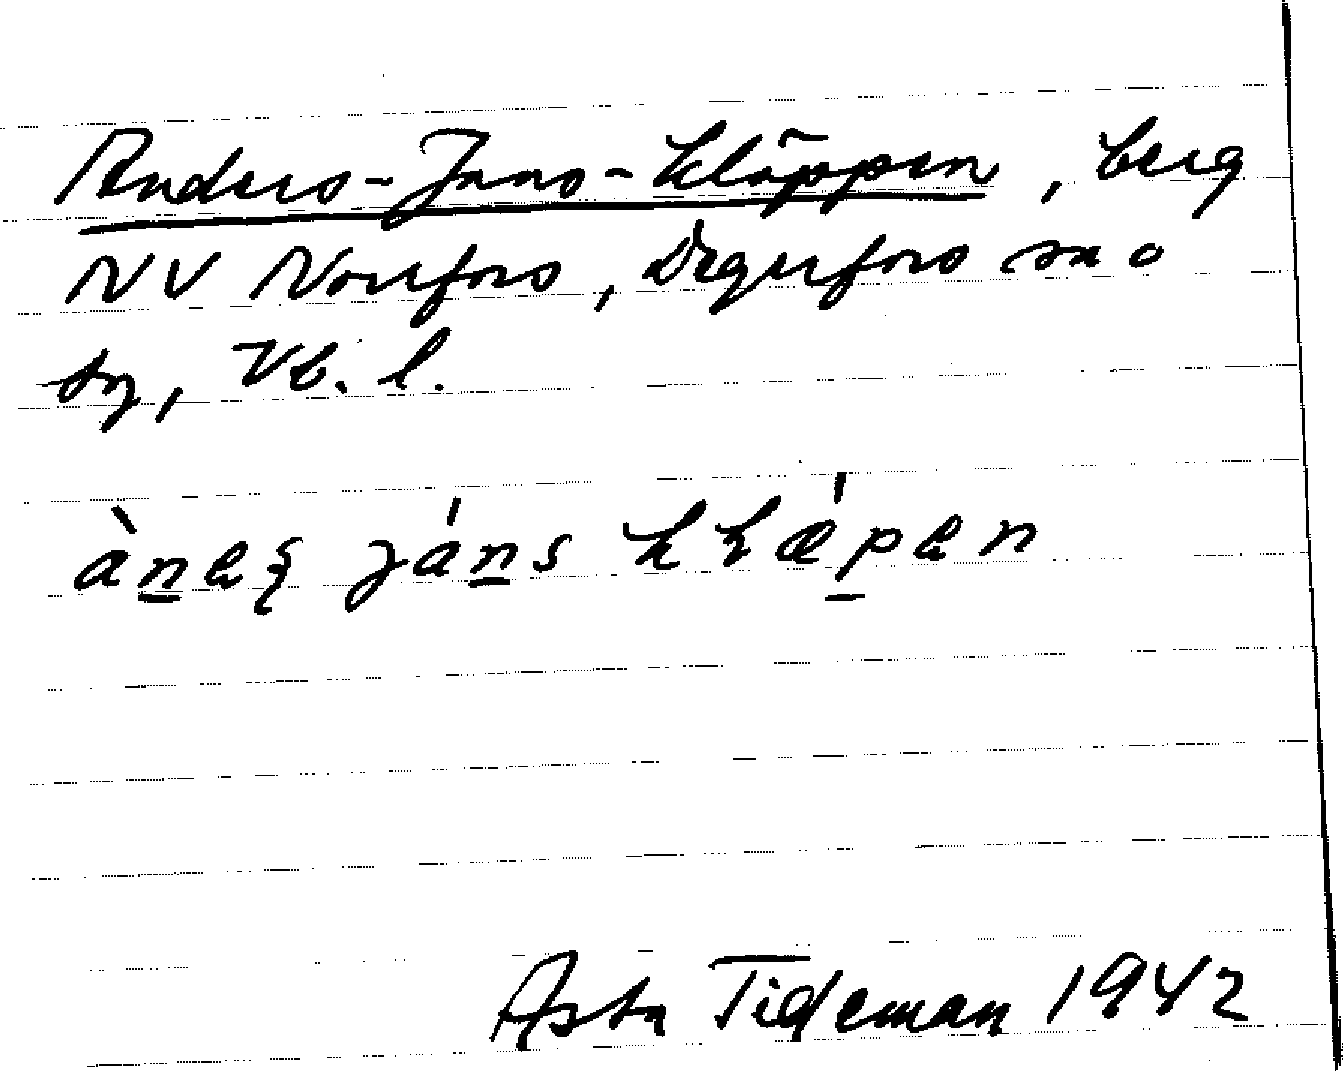 Anders-Jans-kläppen, berg
NV Norrfors, Degerfors sn o
sg, Vb. l.
Asta Tideman 1942